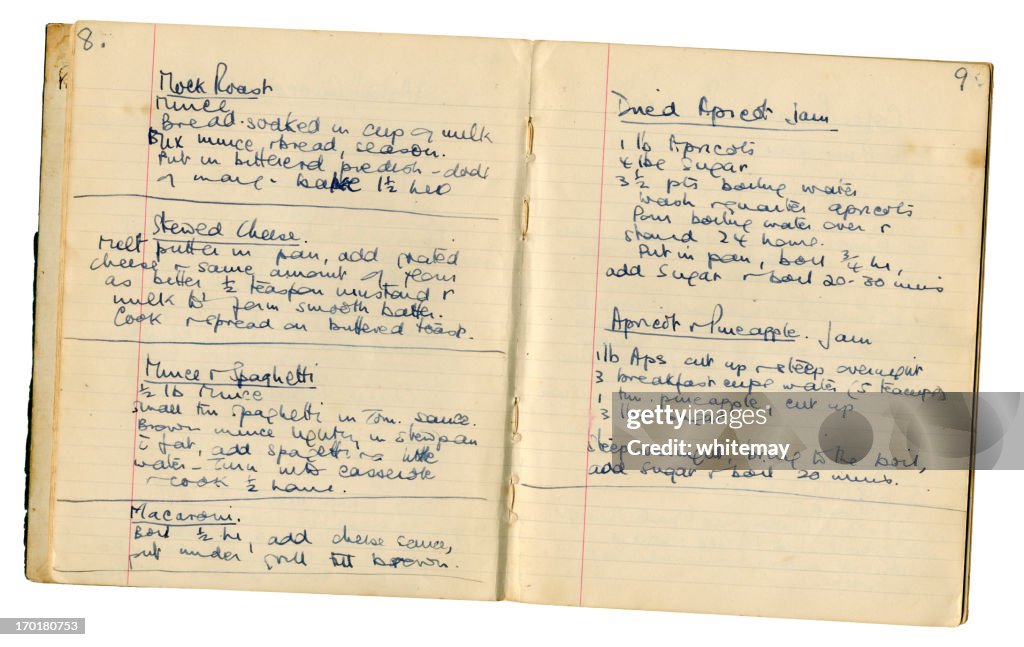 8.
Mock Roast
Mince
Bread soaked in cup of milk
Mix mince & bread, season.
Put in buttered piedish - dods
of marg - bake 1½ hrs
Stewed Cheese.
Melt butter in pan, add grated
cheese & same amount of flour
as butter ½ teaspn mustard &
milk to form smooth batter.
Cook & spread on buttered toast.
Mince & Spaghetti
½ lb Mince
Small tin Spaghetti in Tom. sauce.
Brown mince lightly in stewpan
c̄ fat, add spaghetti & little
water - Turn into casserole
& cook ½ hour.
Macaroni.
Boil ½ hr, add cheese sauce,
put under grill till brown.
9.
Dried Apricot Jam
1 lb Apricots
4 lbs Sugar
3½ pts boiling water
Wash & quarter apricots
Pour boiling water over &
stand 24 hours.
Put in pan, boil ¾ hr,
add sugar & boil 20-30 mins
Apricot & Pineapple Jam
1 lb Aps cut up & steep overnight
3 breakfast cups water (5 teacups)
1 tin pineapple, cut up
3 lb
Steep to the boil,
add sugar & boil 20 mins.
gettyimages®
whitemay
170180753